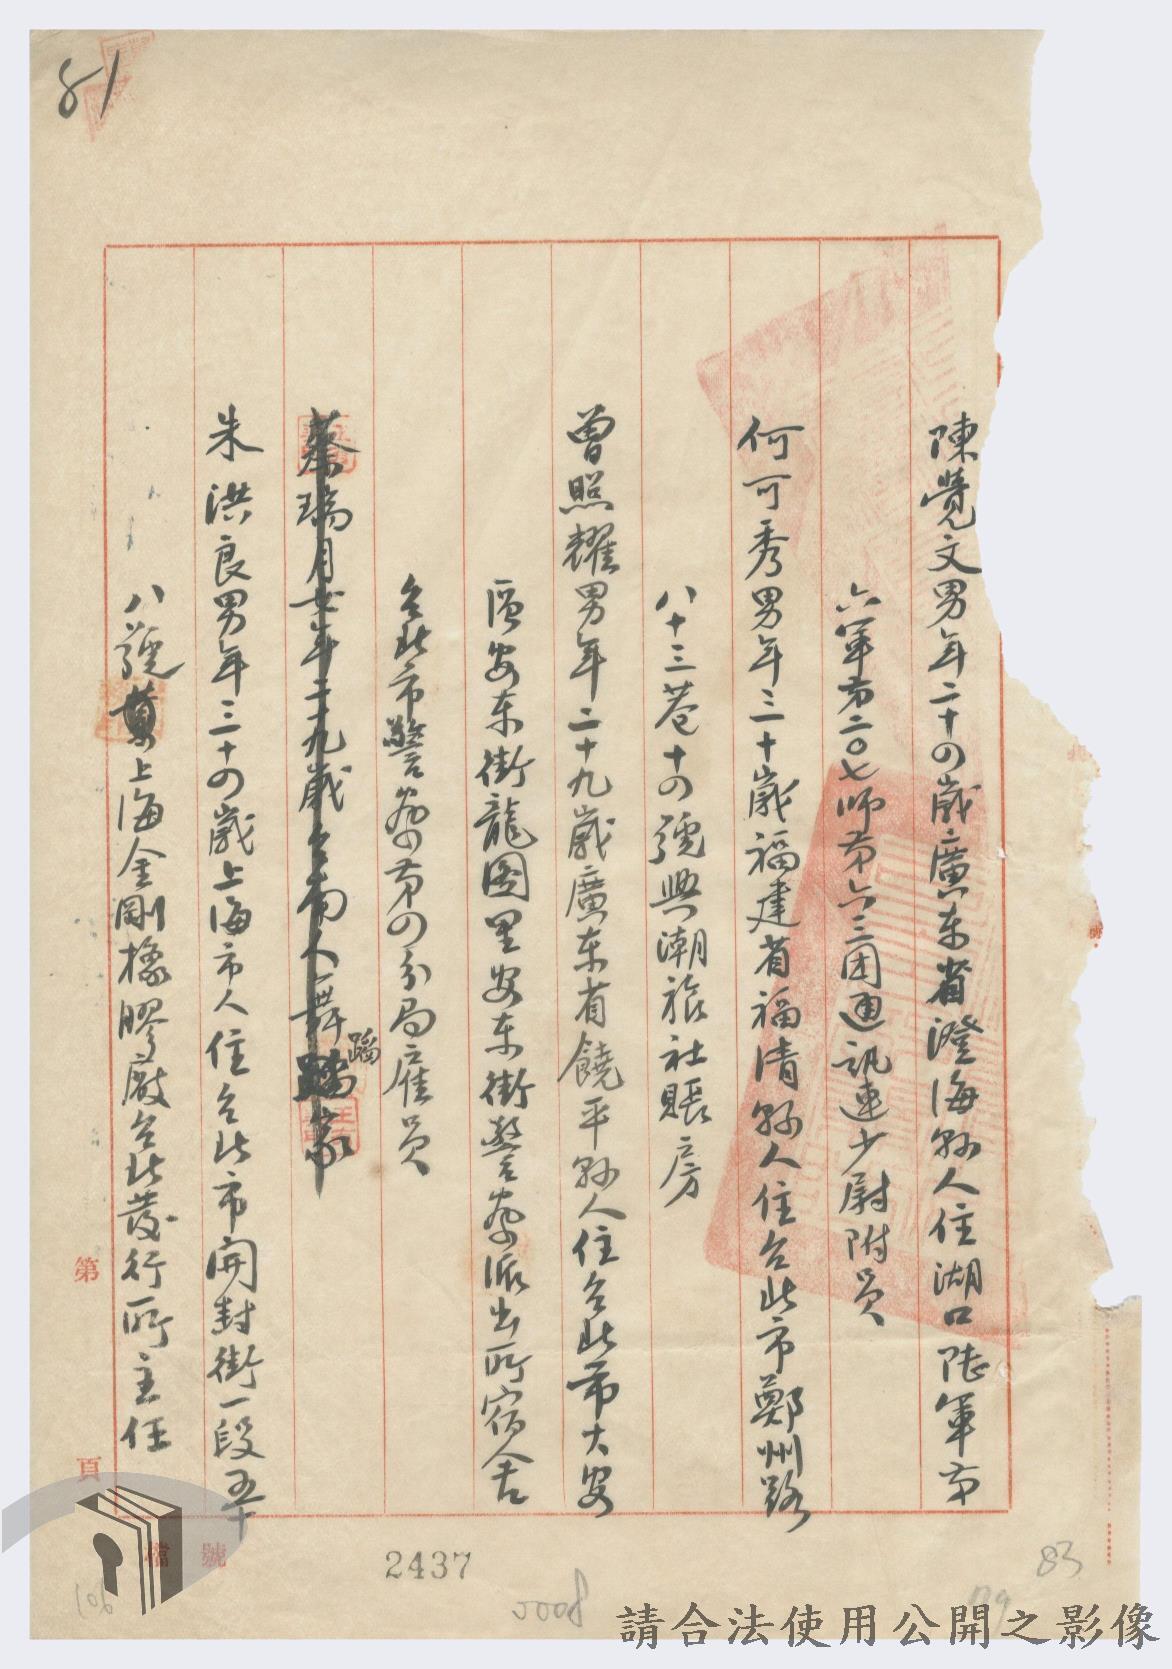 81
陳覺文男年二十四歲廣東省澄海縣人住湖口陸軍第
六軍第二〇七師第六三團通訊連少尉附員
何可秀男年三十歲福建省福清縣人住台北市鄭州路
八十三巷十四號興潮旅社賬房
曾照耀男年二十九歲廣東省饒平縣人住台北市大安
區安東街龍圖里安東街警察派出所宿舍
台北市警察第四分局雇員
蔡瑞月女年二十九歲台南人舞蹈家
朱洪良男年三十四歲上海市人住台北市開封街一段五十
八號上海金剛橡膠廠台北發行所主任
第 頁
檔 號
2437
5008
83
106
請合法使用公開之影像